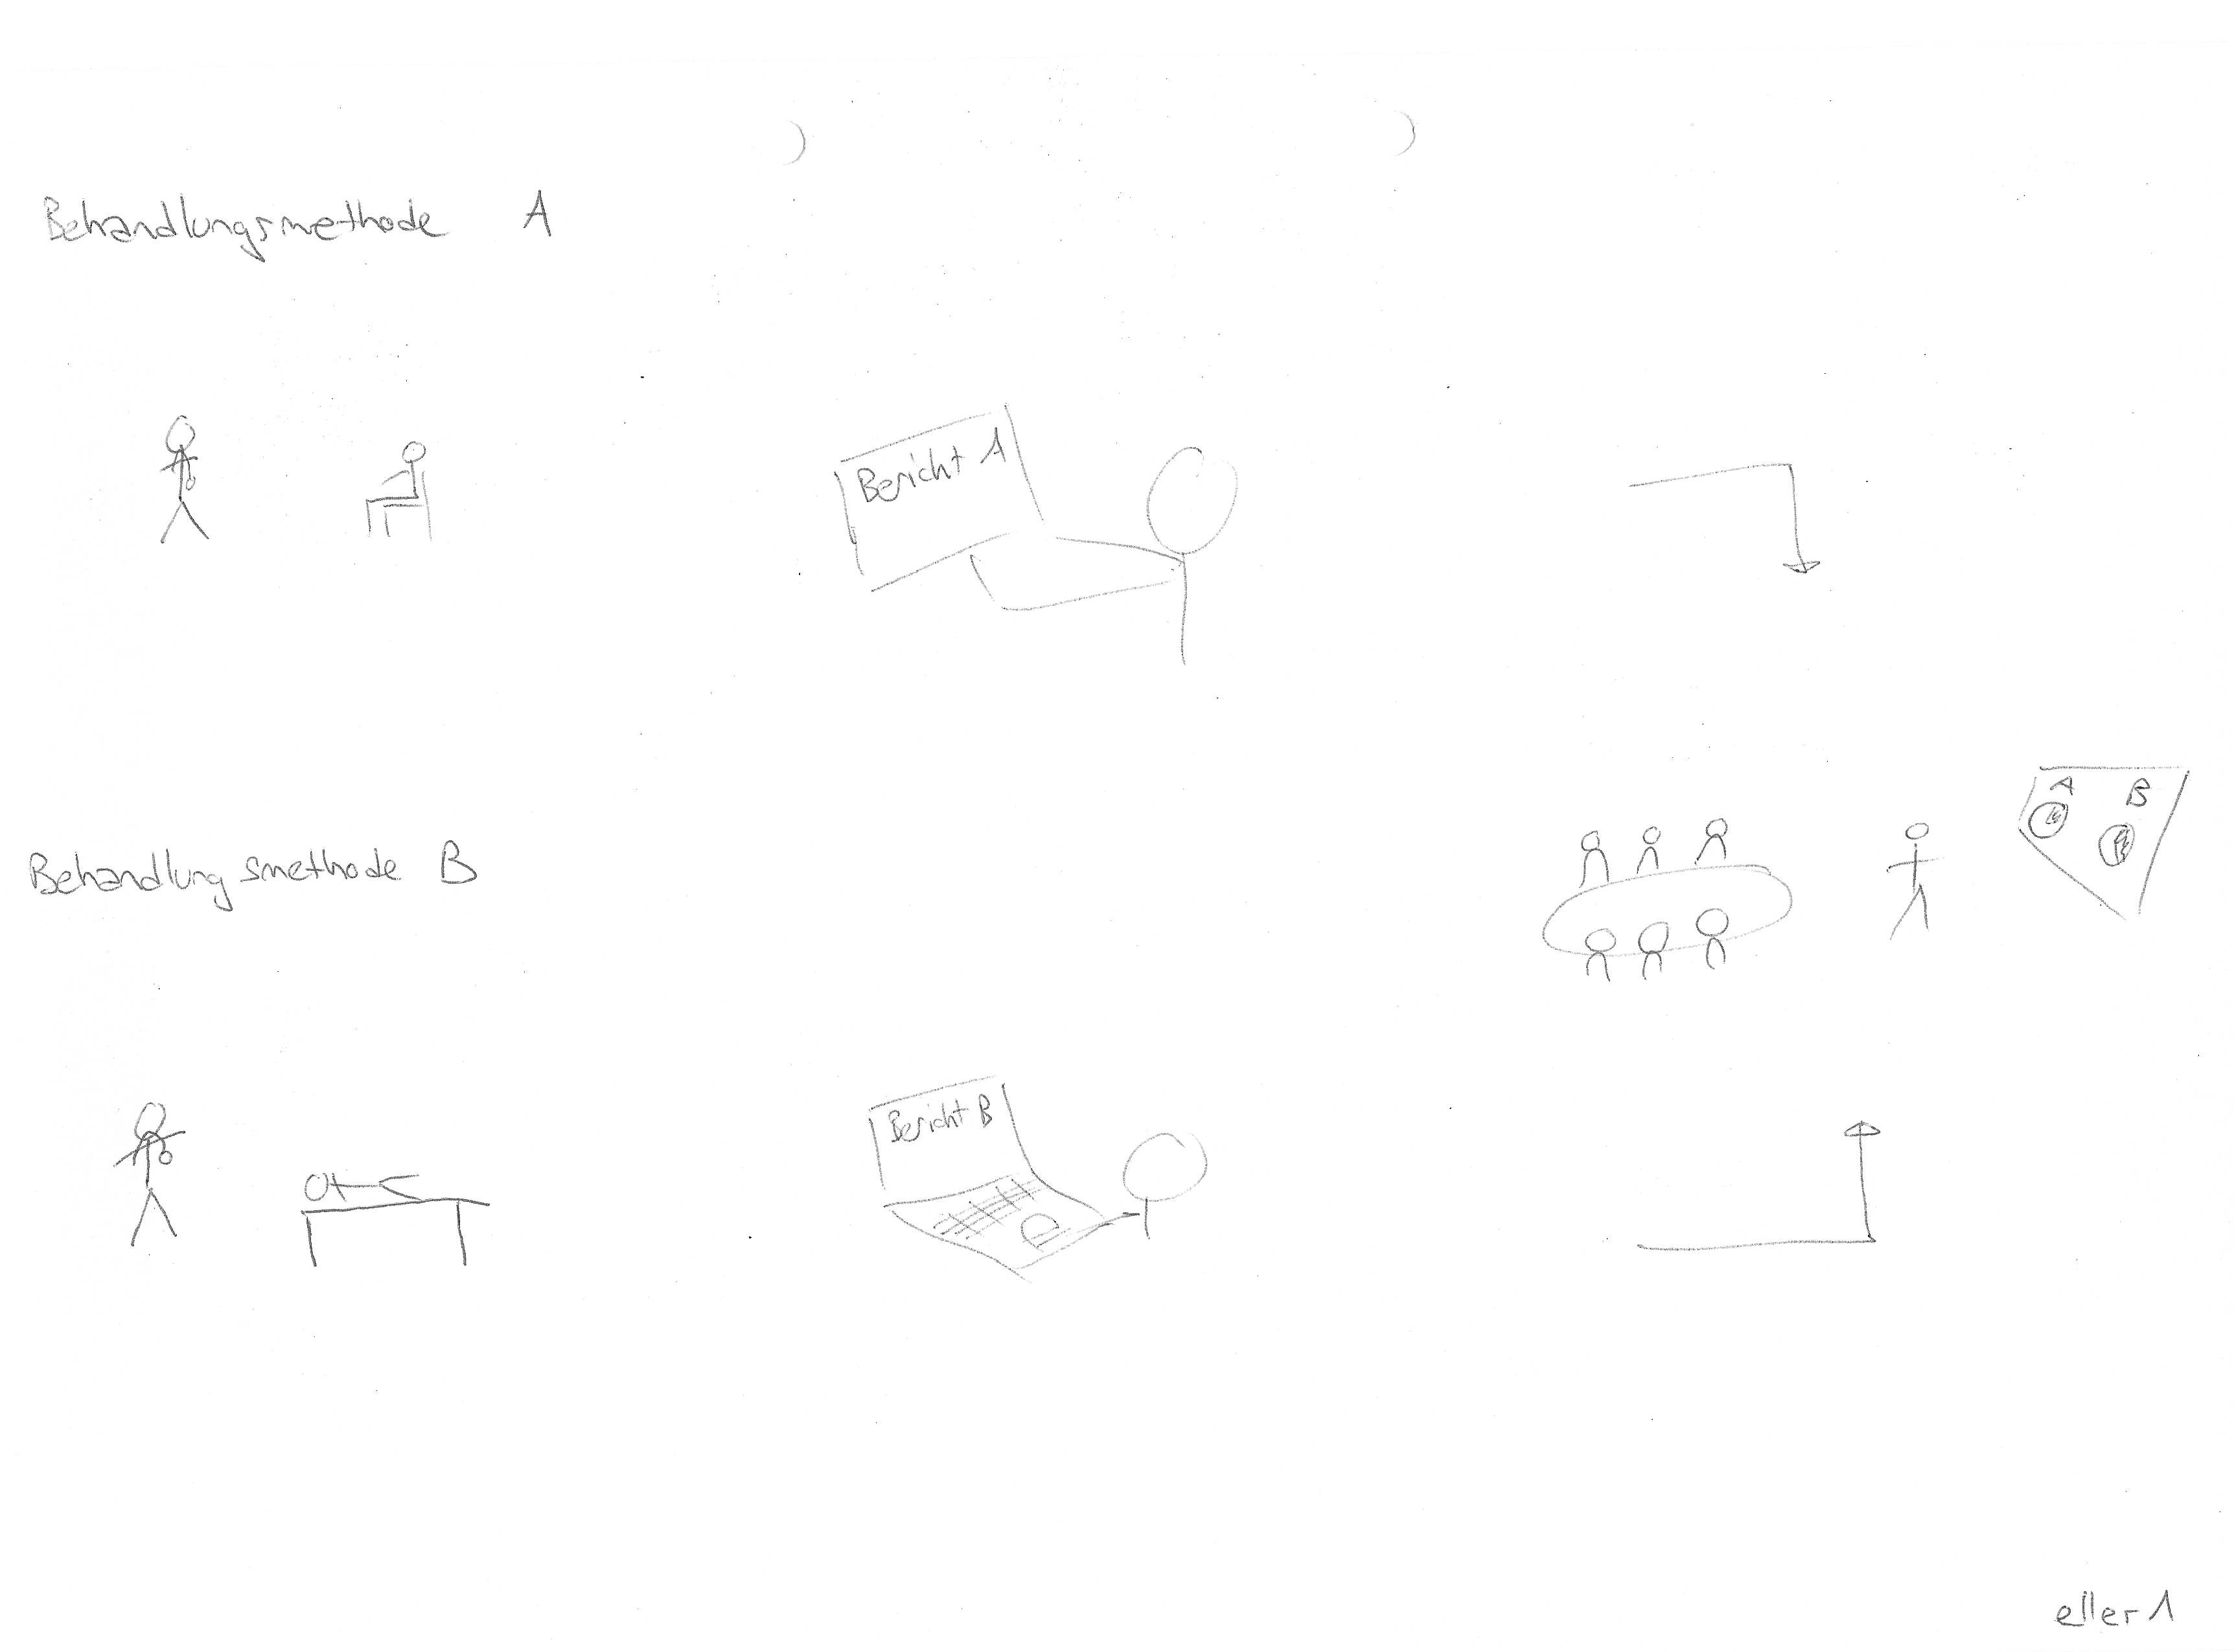 Behandlungsmethode A
Bericht A
A B
Behandlungsmethode B
Bericht B
eller1